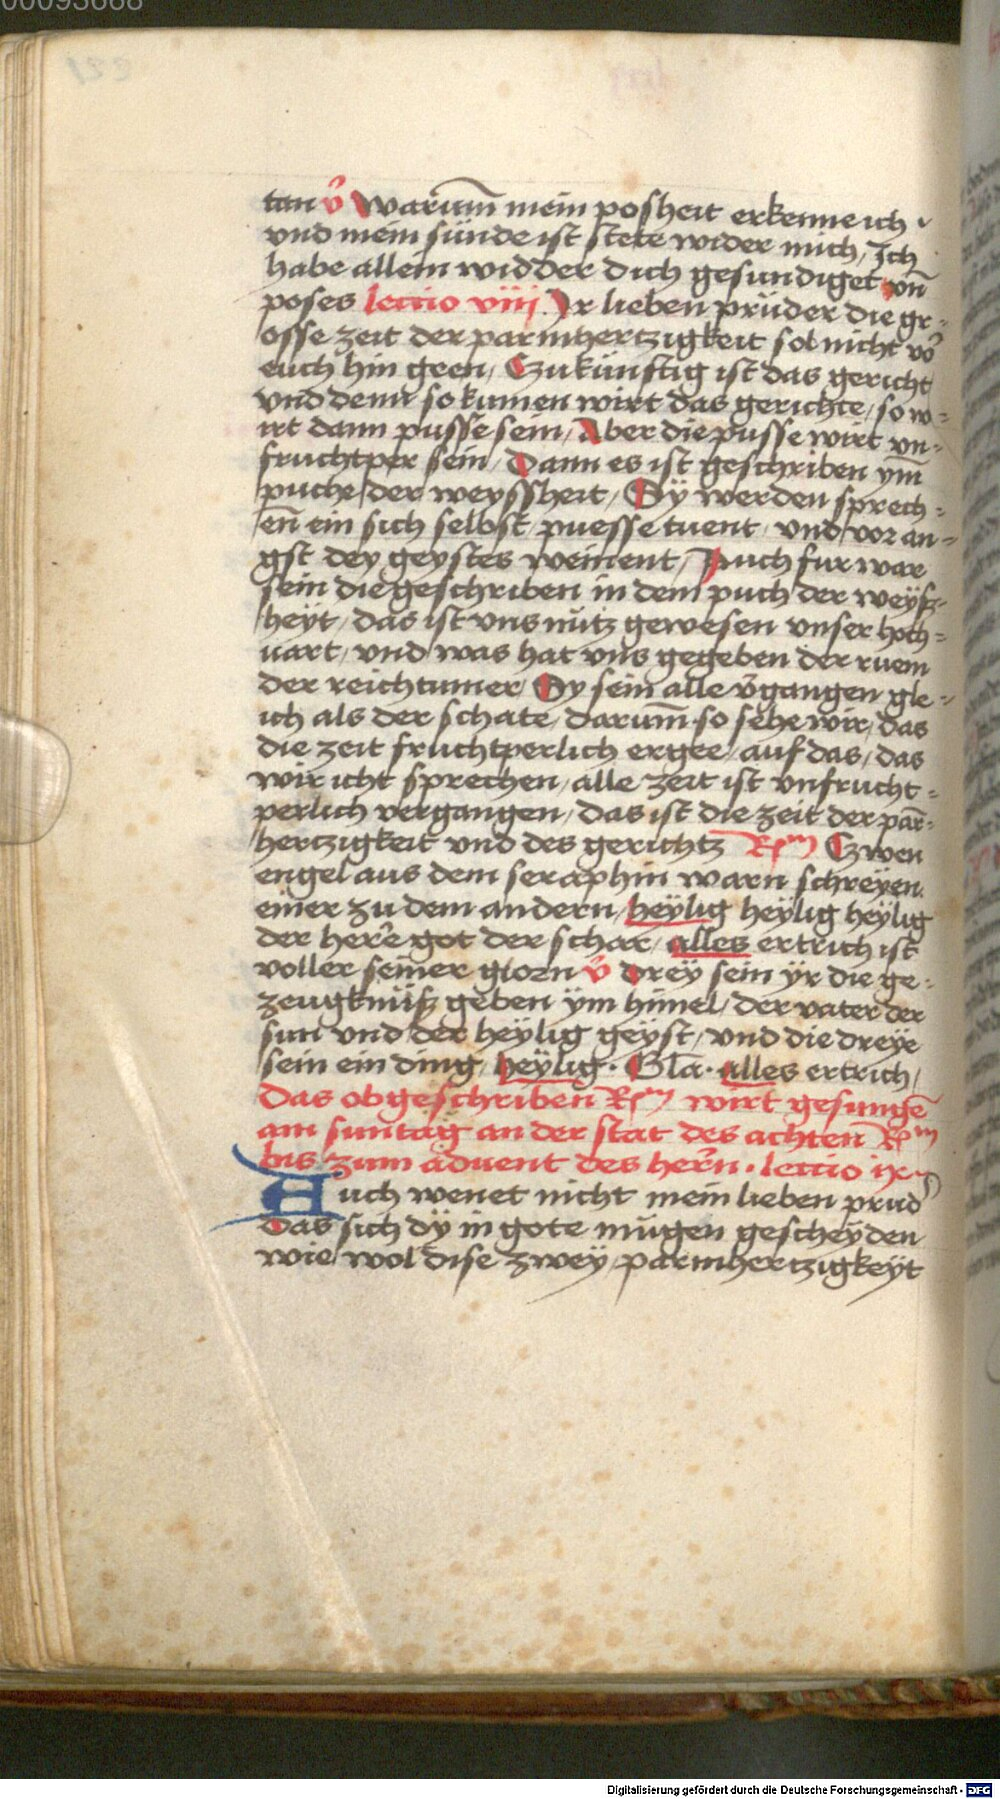 00093668
tan v̊ Warum̄ mein posheit erkenne ich
vnd mein sünde ist stete wider mich, Ich
habe allein widder dich gesundiget vn̄
poses lectio viij Ir lieben prüder die gr-
osse zeit der parmhertzigkeit sol nicht vo᷑
euch hin geen, Czukünftig ist das gericht
vnd denn so kumen wirt das gerichte, so w-
irt dann pusse sein, Aber die pusse wirt vn-
fruchtper sein, Dann es ist geschriben ym̄
puche der weyssheit, Sÿ werden sprech-
en̄ ein sich selbst puesse tuent vnd vor an-
gst dey geystes weinent, Auch fur war
sein die geschriben in dem puch der weyß-
heyt, das ist vns nütz gewesen vnser hoch-
uart, vnd was hat vns gegeben der ruem
der reichtumer Sy sein alle v᷑gangen gle-
ich als der schate, darum̄ so sehe wir, das
die zeit fruchtperlich ergee, auf das, das
wir icht sprechen, alle zeit ist vnfrucht-
perlich vergangen, das ist die zeit der par̄-
hertzigkeit vnd des gerichtz Rm Czwen
engel aus dem seraphin warn schreÿen
einer zu dem andern, heÿlig heÿlig heÿlig
der her᷑e got der schar, alles ertrich ist
voller seiner glorn v̊ Dreÿ sein ÿr die ge-
zeugknüß geben ÿm himel, der vater der
sun vnd der heÿlig geÿst, vnd die dreÿe
sein ein ding, heÿlig. Gl̄a. alles ertrich,
Das obgeschriben Rm wirt gesungē
am suntag an der stat des achten Rm
bis zum aduent des her᷑n. lectio ix
Auch wenet nicht mein lieben prud᷑
Das sich dÿ in gote mügen gescheÿden
wie wol dise zweÿ, parmhertzigkeÿt
Digitalisierung gefördert durch die Deutsche Forschungsgemeinschaft - DFG